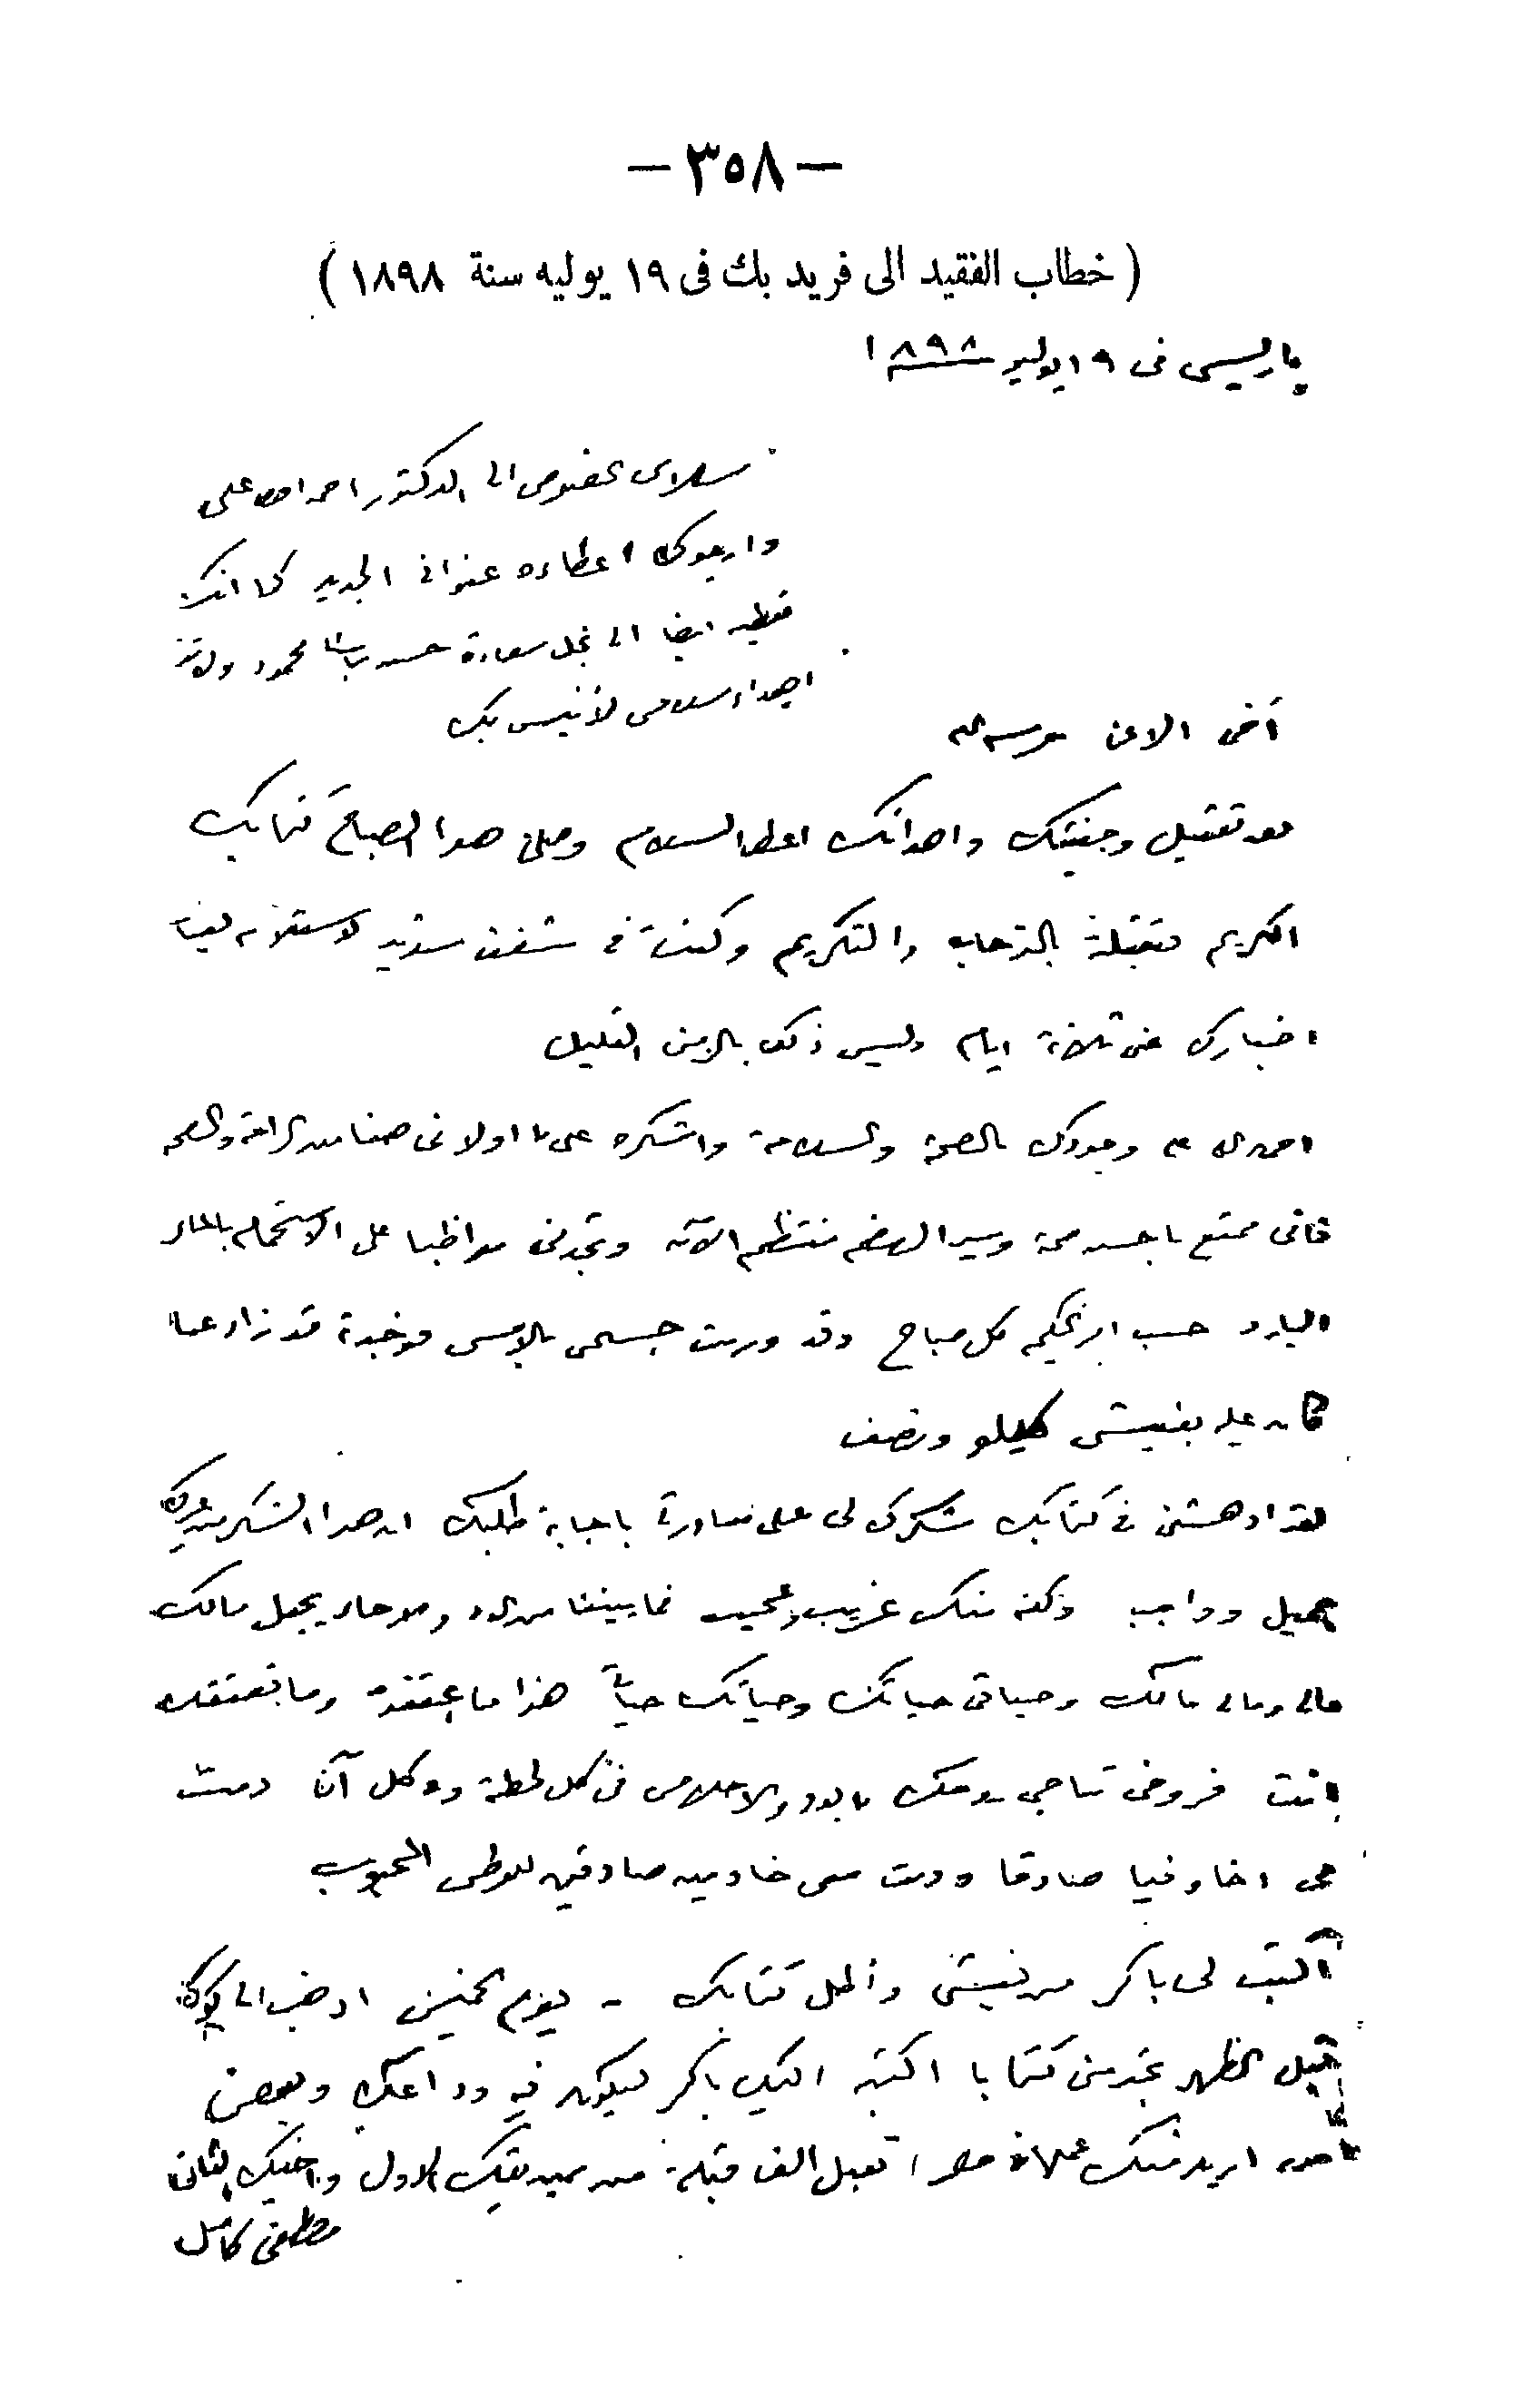 — ٣٥٨ —
( خطاب الفقيد الى فريد بك فى ١٩ يوليه سنة ١٨٩٨ )
پاريس فى ١٩ يوليو ١٨٩٨
سلامى الى الدكتور احمد على
وارجوك اعطاءه عنوانى الجديد كما انك
تعطيه ايضا الى نجل سعادة حسن باشا محمود
اهداء سلامى لأنيس بك
أخى الاعز حرسه الله
بعد تقبيل وجنتيك واهدائك اعطر السلام وصلنى هذا الصباح كتابك
الكريم فتقبلته بالترحاب والتكريم وكنت فى شغف شديد لاستلامه لغياب
اخبارك عنى ثلاثة ايام وليس ذلك بالزمن القليل
احمد الله على وجودك بالصحة والسلامة واشكره على ما اولانى هنا من الراحة والصحة
فانى متمتع باحسن صحة وسير الهضم منتظم الآن وتجدنى مواظبا على الاستحمام بالماء
البارد حسب امر الحكيم كل صباح وقد وزنت جسمى بالامس فوجدته قد زاد عما
كان عليه بفيشى كيلو ونصف
لقد ادهشنى فى كتابك شكرك لى على مبادرتى باجابة طلبك ان هذا الشكر من غيرك
جميل وواجب ولكنه منك غريب وعجيب فما بيننا من الود والاخاء يجعل مالك
مالى ومالى مالك وحياتى حياتك وحياتك حياتى هذا ما اعتقده وما تعتقده
انت فروحى تناجى روحك بالود والاخلاص فى كل لحظة وفى كل آن دمت
لى اخا وفيا صادقا ودمت معى خادمين صادقين للوطن المحبوب
أكتب لى باكر من فيشى وأطل كتابك - يوم الخميس اذهب الى
قبل الظهر تجد منى كتابا اكتبه اليك باكر ليكون فيه وداعك وبعض
ما اريد منك عمله فى مصر تقبل الف قبلة من صديقك الاول واخيك الثانى
مصطفى كامل